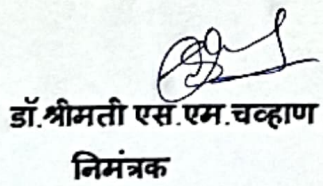 डॉ.श्रीमती एस.एम.चव्हाण
निमंत्रक